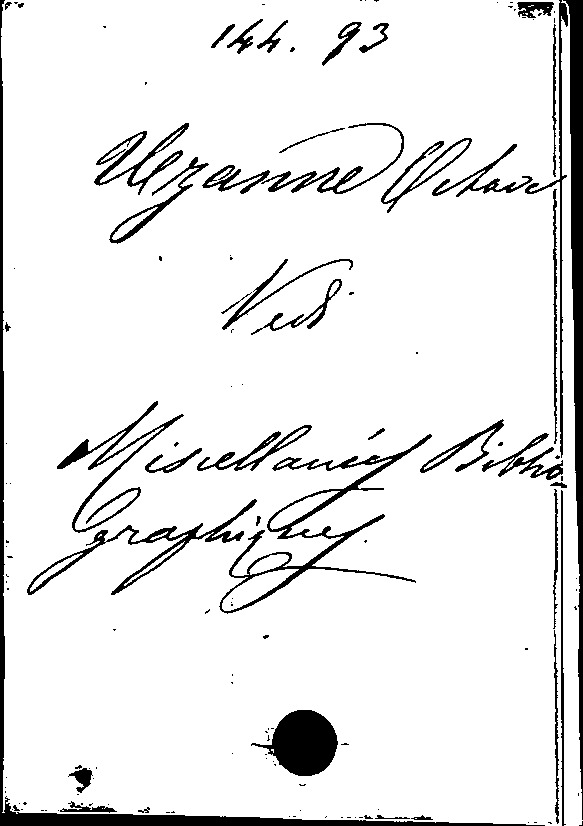 144. 93
Uzanne Octave
Vedi
Miscellanées Biblio-
graphiques.